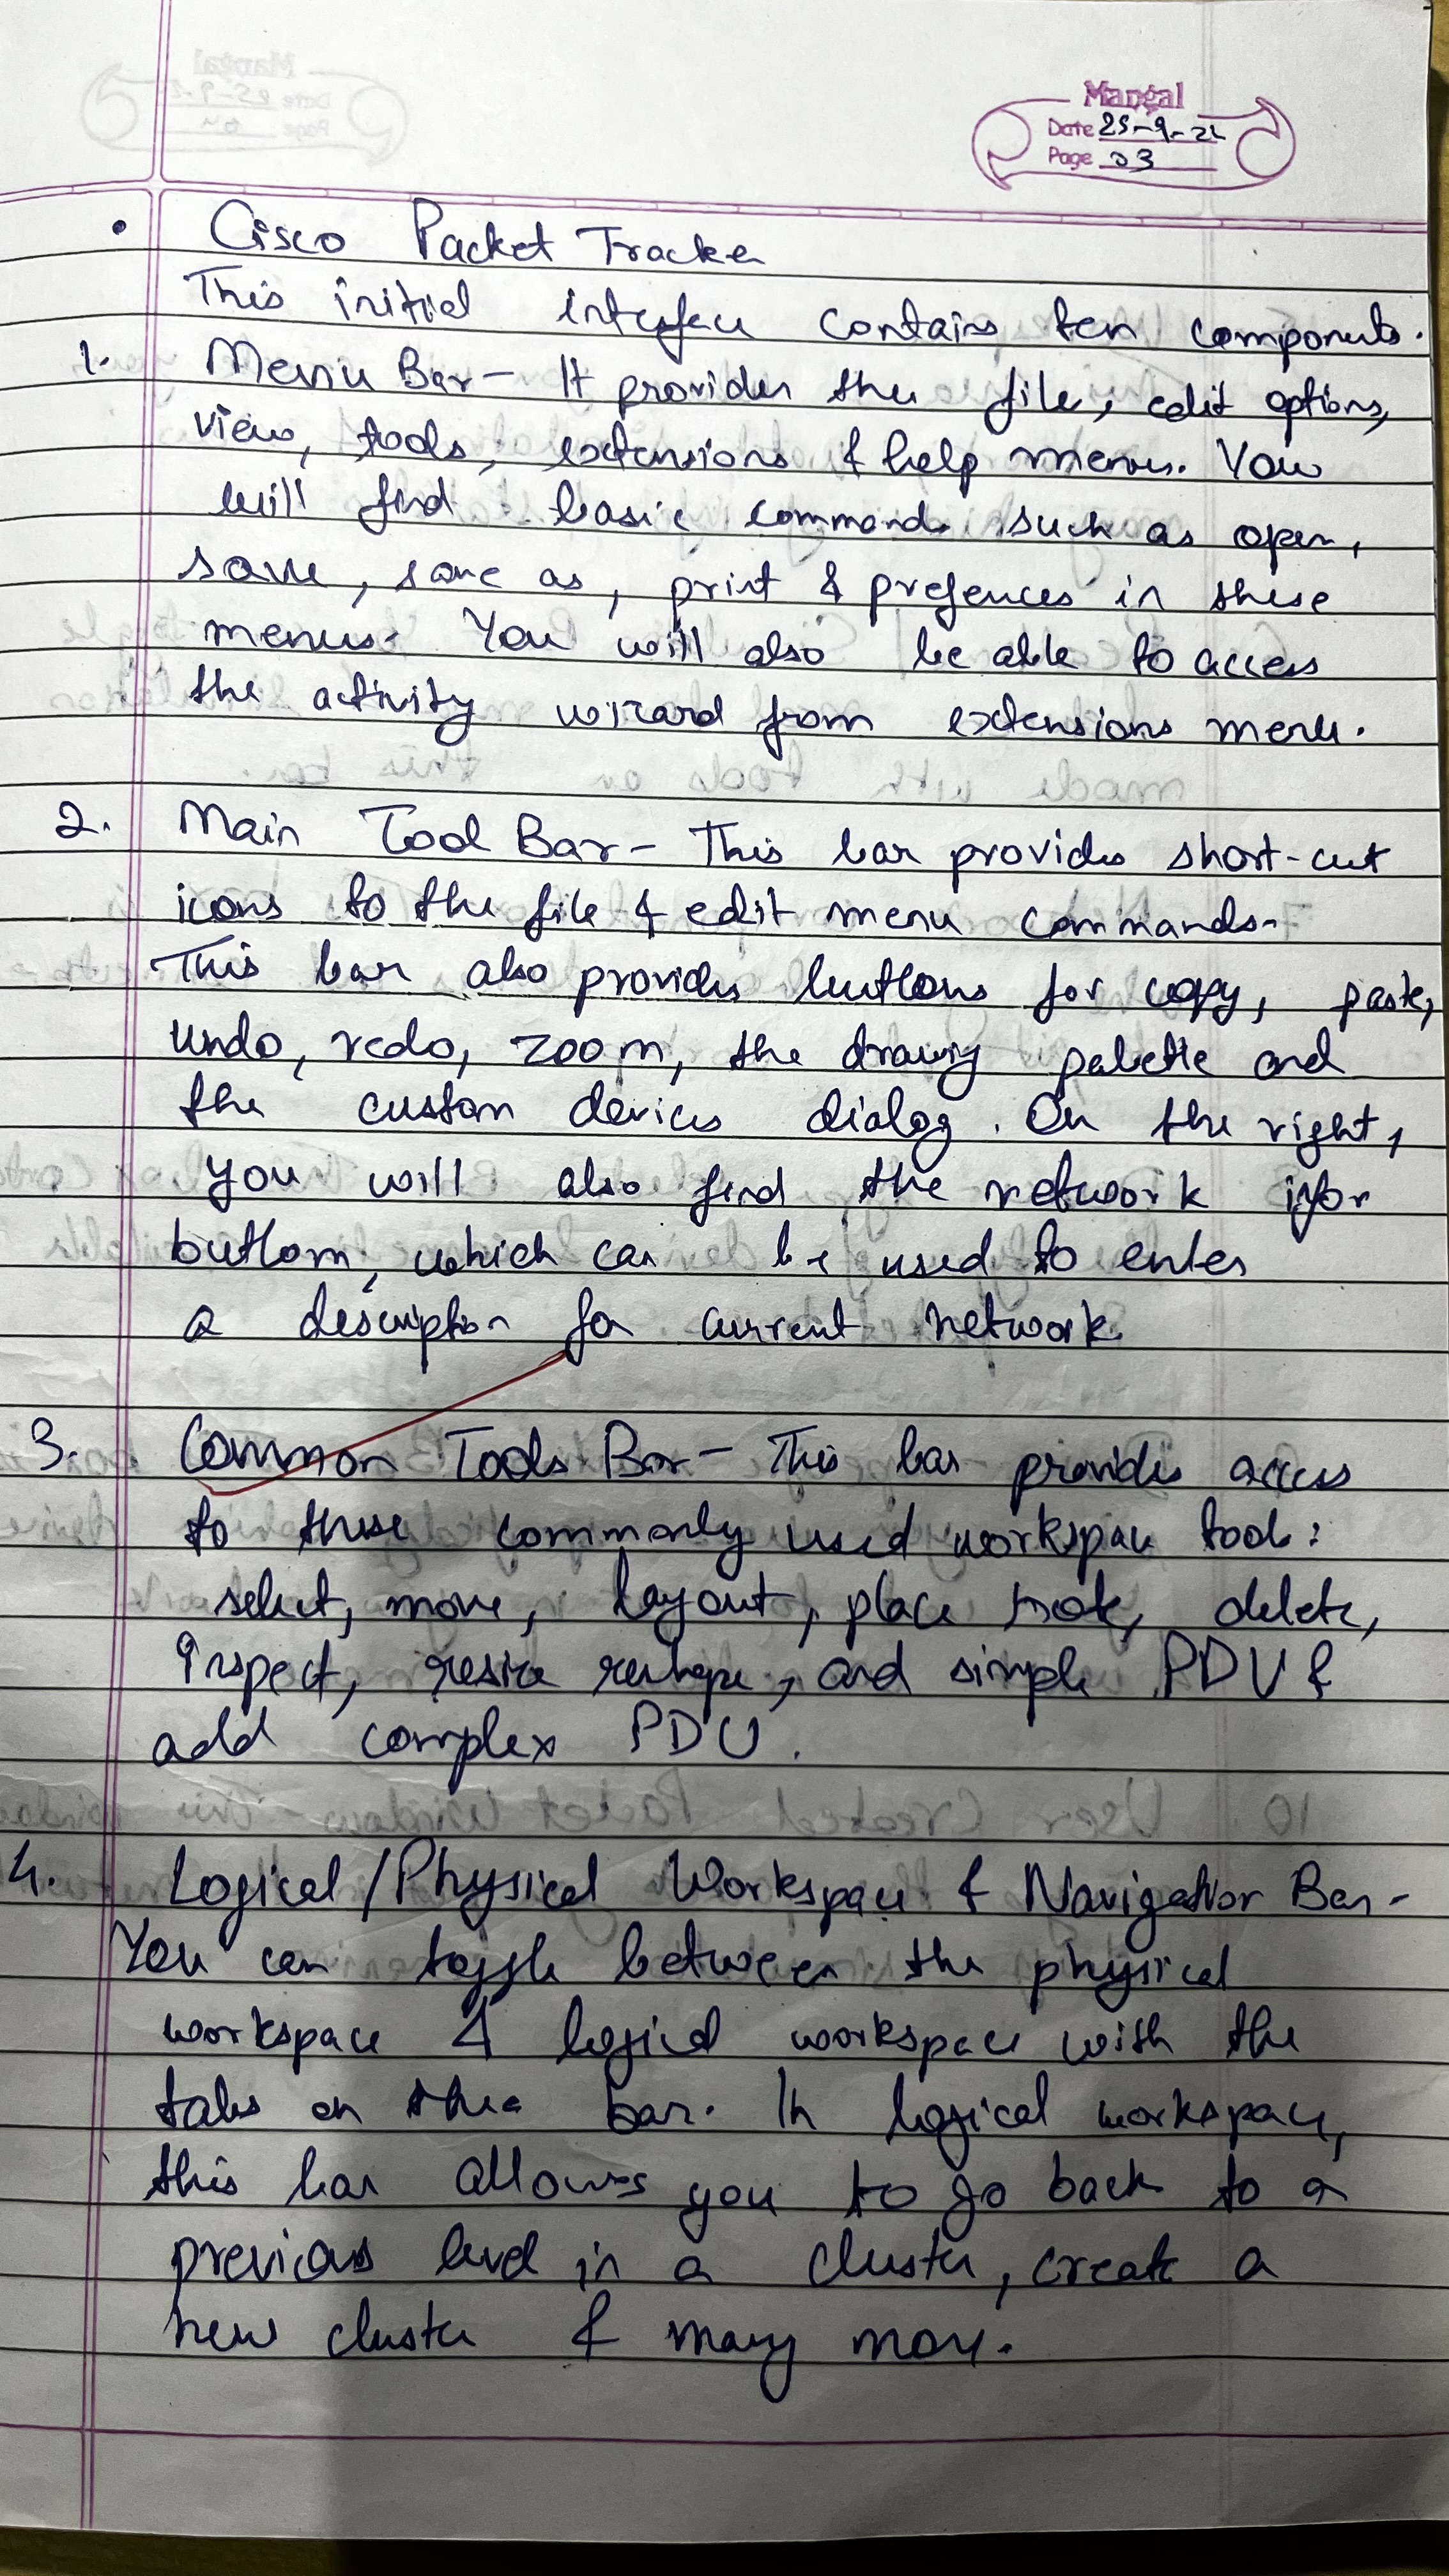 Mangal
Date 25-9-22
Page 03
• Cisco Packet Tracker
This initial interface contains ten components.
1. Menu Bar - It provides the file, edit options,
view, tools, extensions & help menu. You
will find basic commands such as open,
save, save as, print & prefences in these
menus. You will also be able to access
the activity wizard from extensions menu.
2. Main Tool Bar - This bar provides short-cut
icons to the file & edit menu commands.
This bar also provides buttons for copy, paste,
undo, redo, zoom, the drawing palette and
the custom devices dialog. On the right,
you will also find the network info
button, which can be used to enter
a description for current network.
3. Common Tools Bar - This bar provides access
to these commonly used workspace tools:
select, move, layout, place note, delete,
Inspect, resize reshape, and simple PDU &
add complex PDU.
4. Logical/Physical Workspace & Navigation Bar -
You can toggle between the physical
workspace & logical workspace with the
tabs on the bar. In logical workspace,
this bar allows you to go back to a
previous level in a cluster, create a
new cluster & many more.